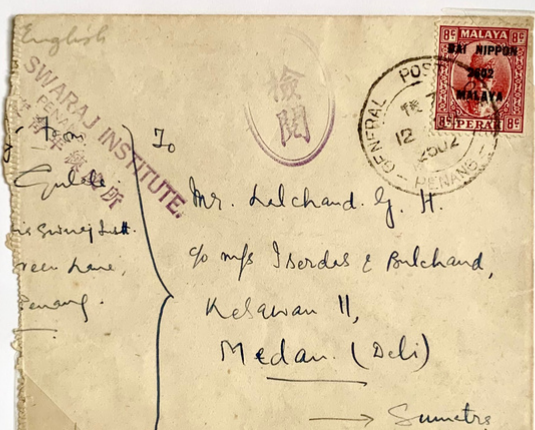 English
SWARAJ INSTITUTE,
PENANG
檢閲
8c MALAYA 8c
DAI NIPPON
2602
MALAYA
8c PERAK 8c
GENERAL POST
12
2502
PENANG
From
Penang.
To
Mr. Lalchand. G. H.
c/o m/s Iserdas & Bulchand,
Kesawan 11,
Medan. (Deli)
→ Sumatra